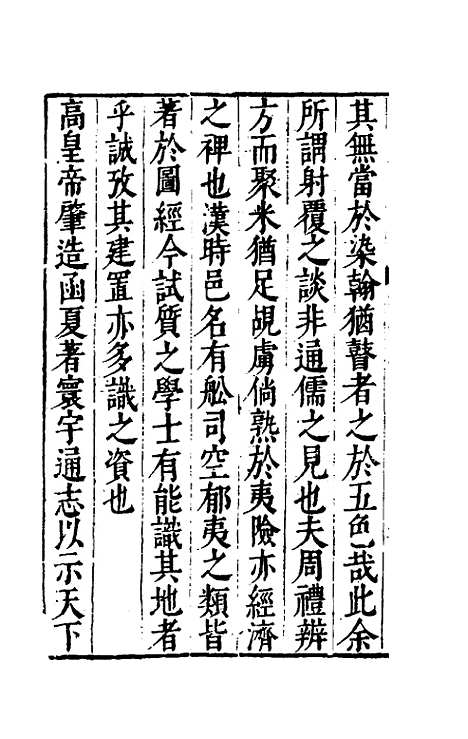 其無當於染翰猶瞽者之於五色哉此余
所謂射覆之談非通儒之見也夫周禮辨
方而聚米猶足覘虜倘熟於夷險亦經濟
之裨也漢時邑名有船司空郁夷之類皆
著於圖經今試質之學士有能識其地者
乎誠攷其建置亦多識之資也
高皇帝肇造函夏著寰宇通志以示天下